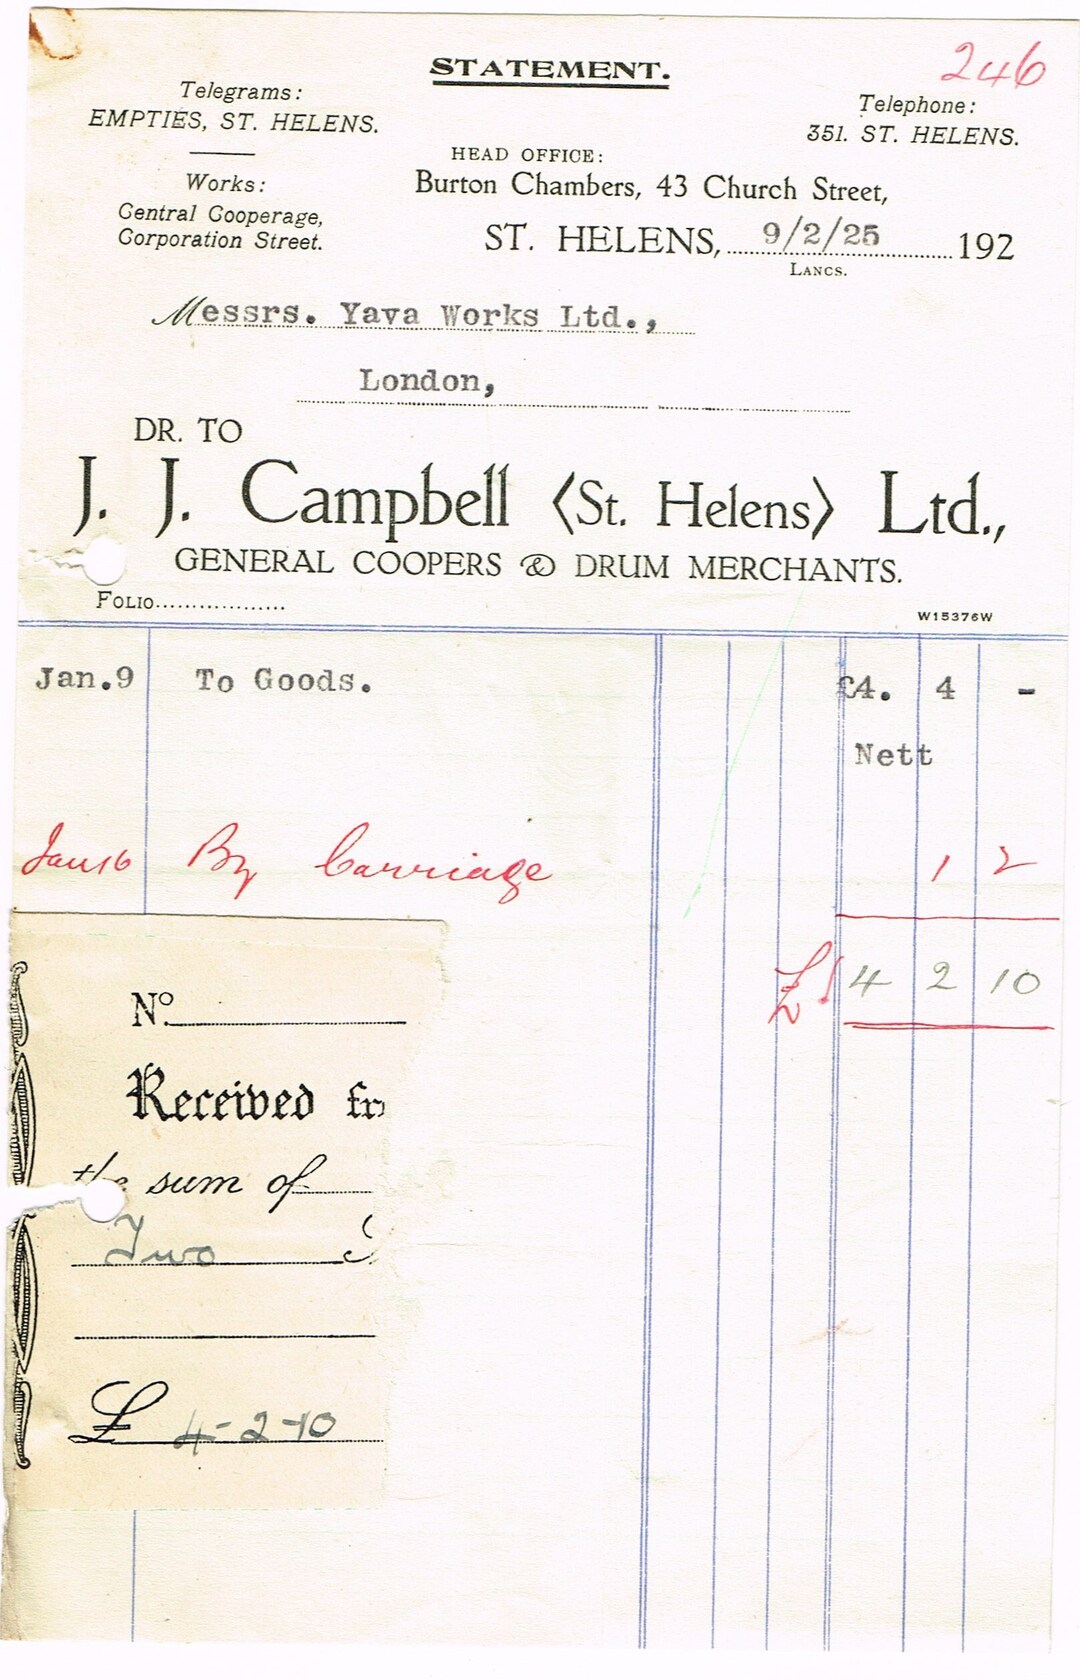 STATEMENT.
246
Telegrams:
EMPTIES, ST. HELENS.
Telephone:
351. ST. HELENS.
HEAD OFFICE:
Burton Chambers, 43 Church Street,
Works:
Central Cooperage,
Corporation Street.
ST. HELENS, 9/2/25 192
LANCS.
Messrs. Yava Works Ltd.,
London,
DR. TO
J. J. Campbell (St. Helens) Ltd.,
GENERAL COOPERS & DRUM MERCHANTS.
FOLIO..................
W15376W
Jan.9 To Goods. £4. 4 -
Nett
Jan 16 By Carriage 1 2
£ 4 2 10
No
Received fr
the sum of
Two
£ 4-2-10